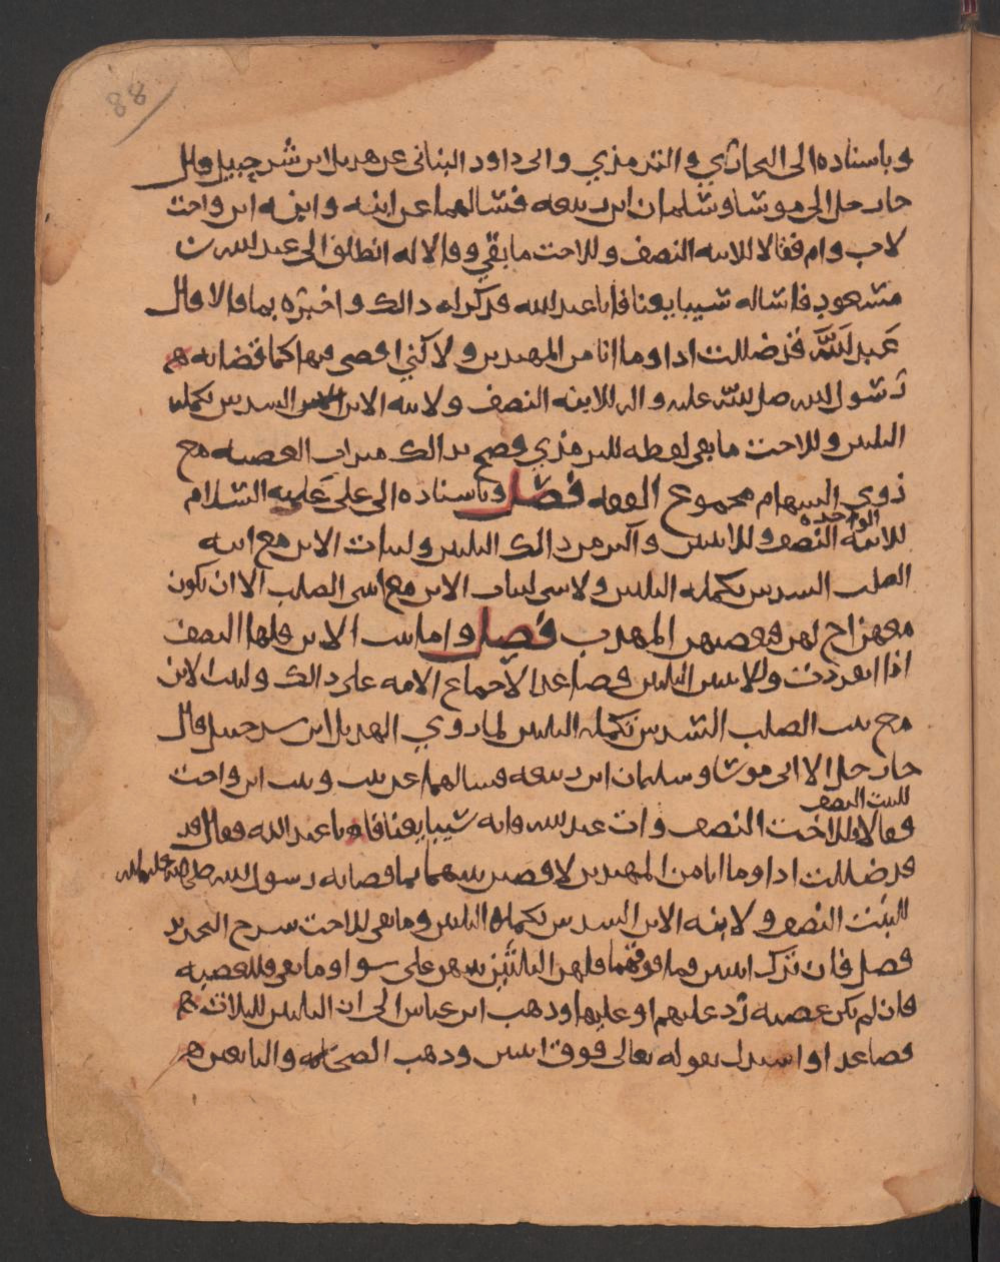 88
وباسناده الى البخاري والترمذي والى داود البناني عن هديل ابن شرحبيل قال
جا رجل الى موسا وسلمان ابن ربيعه فسالهما عن ابنه وابنه ابن واخت
لاب وام فقالا للابنه النصف وللاخت ما بقي وقالا له انطلق الى عبد الله بن
مسعود فاساله سيبايعنا فاتا عبد الله فذكر له ذالك واخبره بما قالا قال
عبد الله قد ضللت اذا وما انا من المهتدين ولاكني اقضي فيها كما قضا به
رسول الله صلى الله عليه واله للابنه النصف ولابنه الابن السدس تكمله
الثلثين وللاخت ما بقي لفظه للترمذي فصح بذالك ميراث العصبه مع
ذوي السهام مجموع الفقه فصل وباسناده الى علي عليه السلام
للابنه الواحده النصف وللابنتين واكثر من ذالك الثلثين ولبنات الابن مع ابنه
الصلب السدس تكمله الثلثين ولا شي لبنات الابن مع ابنتي الصلب الا ان يكون
معهن اخ لهن فيعصبهن المهذب فصل واما بنت الابن فلها النصف
اذا انفردت وللابنتين الثلثين فصاعدا لاجماع الامه على ذالك ولبنت الابن
مع بنت الصلب السدس تكمله الثلثين لما روي الهديل ابن سرحبيل قال
جا رجل الا الى موسا وسلمان ابن ربيعه فسالهما عن بنت وبنت ابن واخت
فقالا للبنت النصف وللاخت النصف وات عبد الله فانه سيبايعنا فاتا عبد الله فقال قد
قد ضللت اذا وما انا من المهتدين لاقضين بينهما بما قضا به رسول الله صلى الله عليه واله
للبنت النصف ولابنه الابن السدس تكمله الثلثين وما بقي للاخت شرح التحرير
فصل فان ترك ابنتين فما فوقهما فلهن الثلثين بينهن على سوا وما بقي فللعصبه
فان لم يكن عصبه رد عليهم او عليها وذهب ابن عباس الى ان الثلثين للثلاث
فصاعدا واستدل بقوله تعالى فوق اثنتين وذهب الصحابه والتابعين